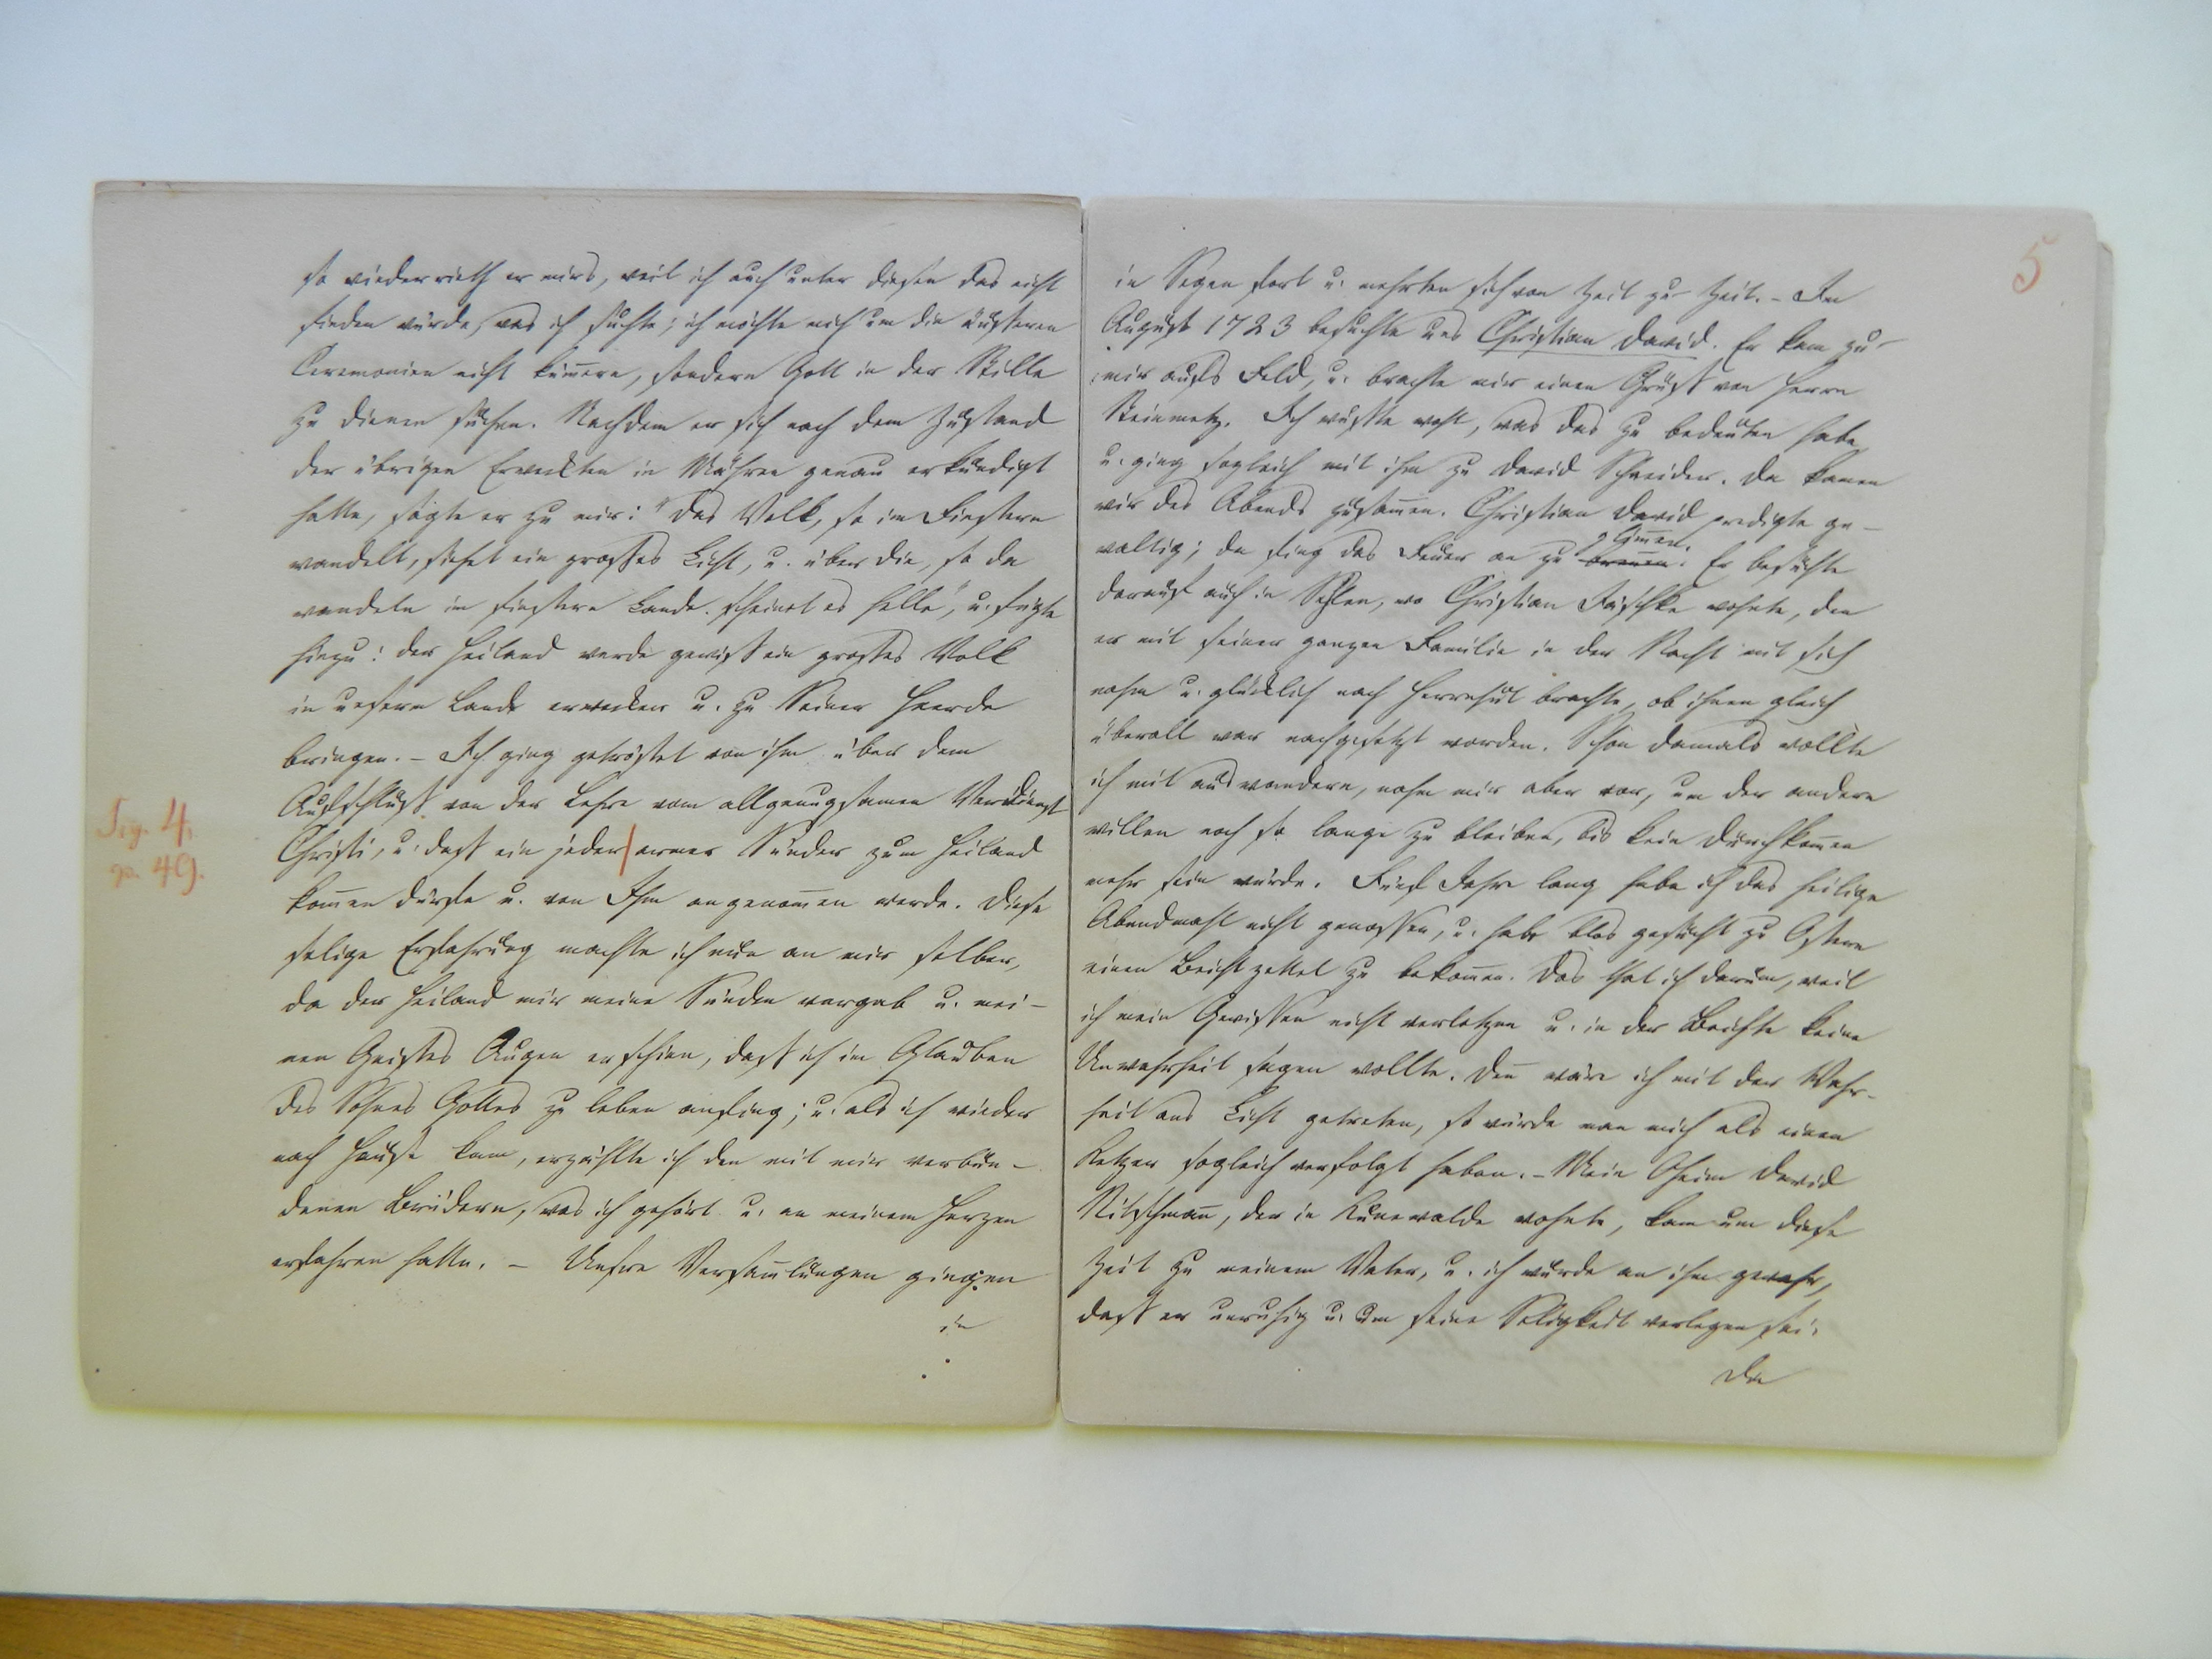 so wiederrieth er mirs, weil ich auch unter diesen das nicht
finden würde, was ich suchte; ich möchte mich um die äußeren
Ceremonien nicht kümern, sondern Gott in der Stille
zu dienen suchen. Nachdem er sich nach dem Zustand
der übrigen Erweckten in Mähren genau erkundigt
hatte, sagte er zu mir: "Das Volk, so im Finstern
wandelt, siehet ein großes Licht, u. über die, so da
wandeln im finstern Lande. scheinet es helle", u. fügte
hinzu: der Heiland werde gewiß ein großes Volk
in unserm Lande erwecken u. zu Seiner Heerde
bringen. – Ich ging getröstet von ihm über dem
Aufschluß von der Lehre vom allgenugsamen Verdienst
Sig. 4.
Christi, u. daß ein jeder armer Sünder zum Heiland
pa. 49.
komen dürfe u. von Ihm angenomen werde. Diese
selige Erfahrung machte ich nun an mir selber,
da der Heiland mir meine Sünden vergab u. mei-
nen Geistes Augen erschien, daß ich im Glauben
des Sohnes Gottes zu leben anfing; u. als ich wieder
nach Hause kam, erzählte ich den mit mir verbun-
denen Brüdern, was ich gehört u. an meinem Herzen
erfahren hatte. – Unsre Versamlungen gingen
in
5
in Segen fort u. mehrten sich von Zeit zu Zeit. – Im
August 1723 besuchte uns Christian David. Er kam zu
mir aufs Feld, u. brachte mir einen Gruß von Herrn
Steinmetz. Ich wußte wohl, was das zu bedeuten habe,
u. ging sogleich mit ihm zu David Schneider. Da kamen
wir des Abends zusamen. Christian David predigte ge-
glimen.
waltig; da fing das Feuer an zu brenen. Er besuchte
darauf auch in Sehlen, wo Christian Jäschke wohnte, den
er mit seiner ganzen Familie in der Nacht mit sich
nahm u. glücklich nach Herrnhut brachte, ob ihnen gleich
überall war nachgesetzt worden. Schon damals wollte
ich mit auswandern, nahm mir aber vor, um der andern
willen noch so lange zu bleiben, bis kein Durchkomen
mehr sein würde. Fünf Jahre lang habe ich das heilige
Abendmahl nicht genossen, u. habe blos gesucht zu Ostern
einen Beichtzettel zu bekomen. Das that ich darum, weil
ich mein Gewissen nicht verletzen u. in der Beichte keine
Unwahrheit sagen wollte. Den wäre ich mit der Wahr-
heit ans Licht getreten, so würde man mich als einen
Ketzer sogleich verfolgt haben. – Mein Oheim David
Nitschman, der in Kunewalde wohnte, kam um diese
Zeit zu meinem Vater, u. ich wurde an ihm gewahr,
daß er unruhig u. um seine Seligkeit verlegen sei.
Da